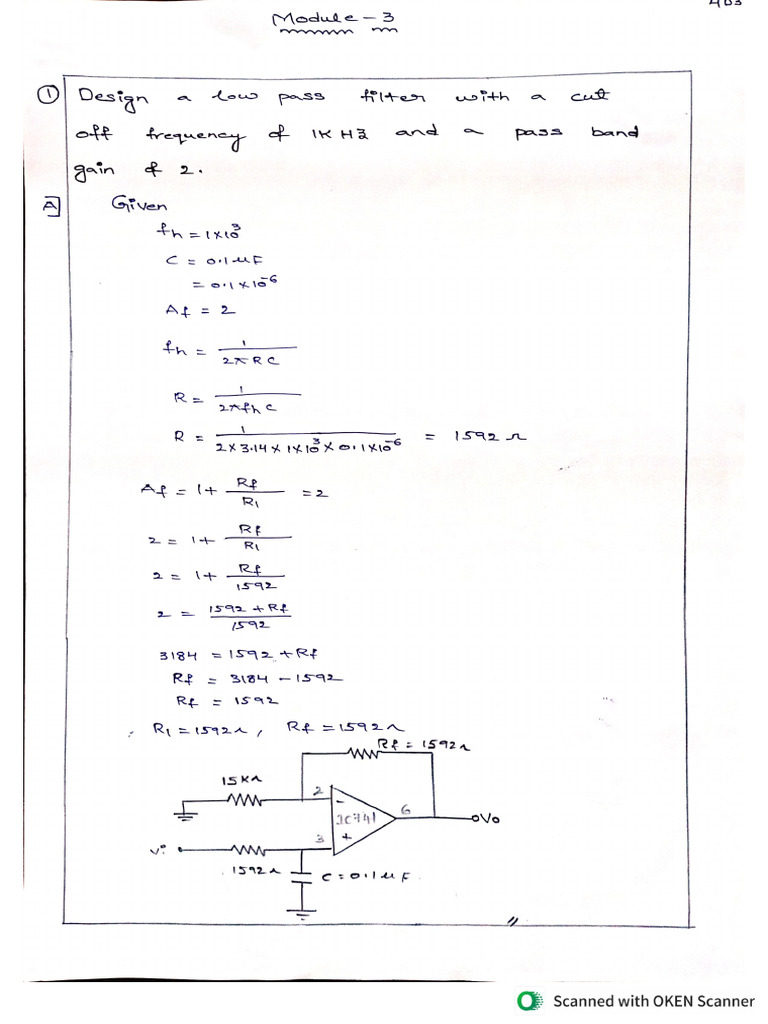 Module - 3
① Design a low pass filter with a cut
off frequency of 1K Hz and a pass band
gain of 2.
A] Given
fh = 1×10³
C = 0.1 µF
= 0.1×10⁻⁶
Af = 2
fh = 1 / 2π R C
R = 1 / 2πfh C
R = 1 / 2×3.14×1×10³×0.1×10⁻⁶ = 1592 Ω
Af = 1 + Rf / R1 = 2
2 = 1 + Rf / R1
2 = 1 + Rf / 1592
2 = 1592 + Rf / 1592
3184 = 1592 + Rf
Rf = 3184 - 1592
Rf = 1592
∴ R1 = 1592Ω, Rf = 1592Ω
Rf = 1592Ω
15KΩ
2
-
IC741
6
Vo
3
+
Vi
1592Ω
C = 0.1 µF
Scanned with OKEN Scanner